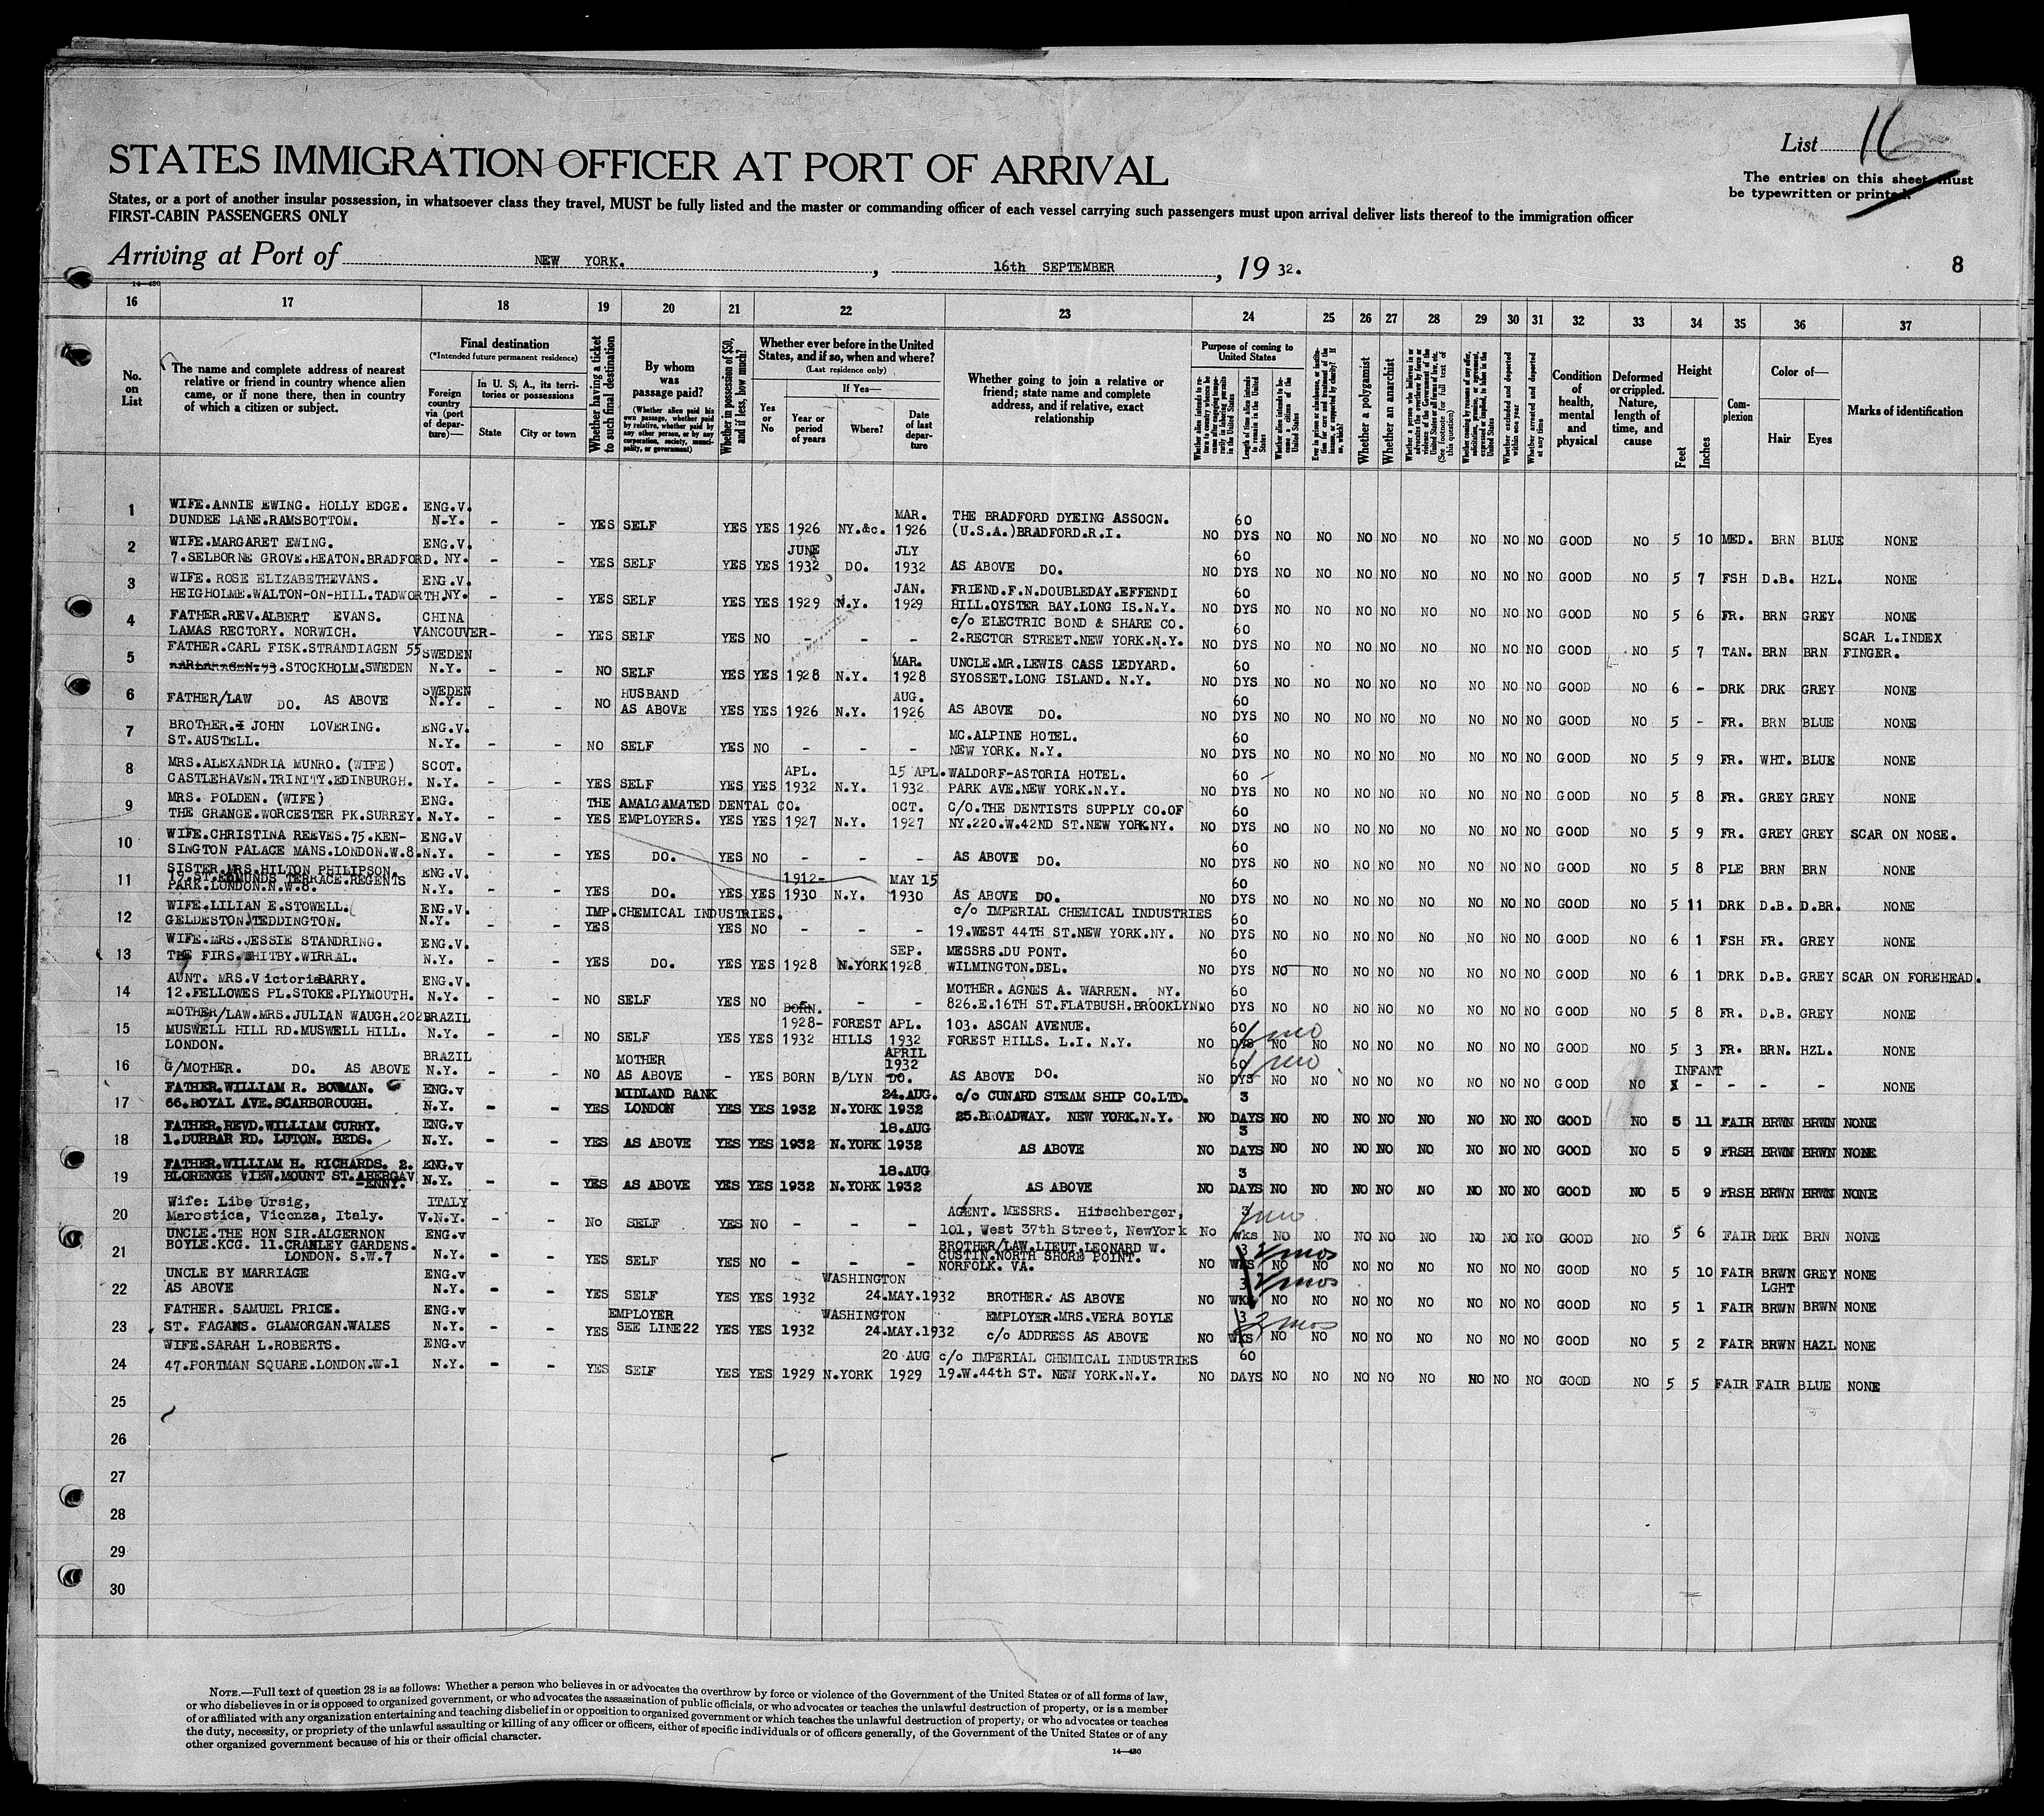 List 16
STATES IMMIGRATION OFFICER AT PORT OF ARRIVAL
The entries on this sheet must
be typewritten or printed.
States, or a port of another insular possession, in whatsoever class they travel, MUST be fully listed and the master or commanding officer of each vessel carrying such passengers must upon arrival deliver lists thereof to the immigration officer
FIRST-CABIN PASSENGERS ONLY
Arriving at Port of NEW YORK. , 16th SEPTEMBER , 19 32.
8
14—480
16 17 18 19 20 21 22 23 24 25 26 27 28 29 30 31 32 33 34 35 36 37
No. on List
The name and complete address of nearest relative or friend in country whence alien came, or if none there, then in country of which a citizen or subject.
Final destination
(*Intended future permanent residence)
Foreign country via (port of departure)—
In U. S. A., its territories or possessions
State
City or town
Whether having a ticket to such final destination
By whom was passage paid?
(Whether alien paid his own passage, whether paid by relative, whether paid by any other person, or by any corporation, society, municipality, or government)
Whether in possession of $50, and if less, how much?
Whether ever before in the United States, and if so, when and where?
(Last residence only)
Yes or No
If Yes—
Year or period of years
Where?
Date of last departure
Whether going to join a relative or friend; state name and complete address, and if relative, exact relationship
Purpose of coming to United States
Length of time alien intends to remain in the United States
Whether alien intends to become a citizen of the United States
Whether a polygamist
Whether an anarchist
(See footnote for full text of this question)
Whether excluded and deported within one year
Whether arrested and deported at any time
Condition of health, mental and physical
Deformed or crippled. Nature, length of time, and cause
Height
Feet
Inches
Complexion
Color of—
Hair
Eyes
Marks of identification
1 WIFE.ANNIE EWING. HOLLY EDGE. ENG.V. MAR. THE BRADFORD DYEING ASSOCN. 60
DUNDEE LANE.RAMSBOTTOM. N.Y. - - YES SELF YES YES 1926 NY.&c. 1926 (U.S.A.)BRADFORD.R.I. NO DYS NO NO NO NO NO NO NO NO GOOD NO 5 10 MED. BRN BLUE NONE
2 WIFE.MARGARET EWING. ENG.V. JUNE JLY 60
7.SELBORNE GROVE.HEATON.BRADFORD. NY. - - YES SELF YES YES 1932 DO. 1932 AS ABOVE DO. NO DYS NO NO NO NO NO NO NO NO GOOD NO 5 7 FSH D.B. HZL. NONE
3 WIFE. ROSE ELIZABETHEVANS. ENG.V. JAN. FRIEND.F.N.DOUBLEDAY.EFFENDI 60
HEIGHOLME.WALTON-ON-HILL.TADWORTH.NY. - - YES SELF YES YES 1929 N.Y. 1929 HILL.OYSTER BAY.LONG IS.N.Y. NO DYS NO NO NO NO NO NO NO NO GOOD NO 5 6 FR. BRN GREY NONE
4 FATHER.REV.ALBERT EVANS. CHINA c/o ELECTRIC BOND & SHARE CO. 60
LAMAS RECTORY. NORWICH. VANCOUVER- - YES SELF YES NO - - - 2.RECTOR STREET.NEW YORK.N.Y. NO DYS NO NO NO NO NO NO NO NO GOOD NO 5 7 TAN. BRN BRN SCAR L.INDEX FINGER.
5 FATHER.CARL FISK.STRANDIAGEN 55 SWEDEN MAR. UNCLE.MR.LEWIS CASS LEDYARD. 60
.STOCKHOLM.SWEDEN N.Y. - NO SELF YES YES 1928 N.Y. 1928 SYOSSET.LONG ISLAND. N.Y. NO DYS NO NO NO NO NO NO NO NO GOOD NO 6 - DRK DRK GREY NONE
6 FATHER/LAW DO. AS ABOVE SWEDEN HUSBAND AUG. 60
N.Y. - - NO AS ABOVE YES YES 1926 N.Y. 1926 AS ABOVE DO. NO DYS NO NO NO NO NO NO NO NO GOOD NO 5 - FR. BRN BLUE NONE
7 BROTHER. JOHN LOVERING. ENG.V. MC.ALPINE HOTEL. 60
ST.AUSTELL. N.Y. - - NO SELF YES NO - - - NEW YORK. N.Y. NO DYS NO NO NO NO NO NO NO NO GOOD NO 5 9 FR. WHT. BLUE NONE
8 MRS.ALEXANDRIA MUNRO.(WIFE) SCOT. APL. 15 APL. WALDORF-ASTORIA HOTEL. 60
CASTLEHAVEN.TRINITY.EDINBURGH. N.Y. - - YES SELF YES YES 1932 N.Y. 1932 PARK AVE.NEW YORK.N.Y. NO DYS NO NO NO NO NO NO NO NO GOOD NO 5 8 FR. GREY GREY NONE
9 MRS. POLDEN. (WIFE) ENG. THE AMALGAMATED DENTAL CO. OCT. C/O.THE DENTISTS SUPPLY CO.OF 60
THE GRANGE.WORCESTER PK.SURREY. N.Y. - - YES EMPLOYERS. YES YES 1927 N.Y. 1927 NY.220.W.42ND ST.NEW YORK.NY. NO DYS NO NO NO NO NO NO NO NO GOOD NO 5 9 FR. GREY GREY SCAR ON NOSE.
10 WIFE.CHRISTINA REEVES.75.KEN- ENG.V 60
SINGTON PALACE MANS.LONDON.W.8. N.Y. - - YES DO. YES NO - - - AS ABOVE DO. NO DYS NO NO NO NO NO NO NO NO GOOD NO 5 8 PLE BRN BRN NONE
11 SISTER.MRS.HILTON PHILIPSON. ENG.V. 1912- MAY 15 60
17.ST.EDMUNDS TERRACE.REGENTS
PARK.LONDON.N.W.8. N.Y. - - YES DO. YES YES 1930 N.Y. 1930 AS ABOVE DO. NO DYS NO NO NO NO NO NO NO NO GOOD NO 5 11 DRK D.B. D.BR. NONE
12 WIFE.LILIAN E.STOWELL. ENG.V. IMP.CHEMICAL INDUSTRIES. c/o IMPERIAL CHEMICAL INDUSTRIES 60
GELDESTON.TEDDINGTON. N.Y. - - YES YES NO - - - 19.WEST 44TH ST.NEW YORK.NY. NO DYS NO NO NO NO NO NO NO NO GOOD NO 6 1 FSH FR. GREY NONE
13 WIFE.MRS.JESSIE STANDRING. ENG.V. SEP. MESSRS.DU PONT. 60
THE FIRS.WHITBY.WIRRAL. N.Y. - - YES DO. YES YES 1928 N.YORK 1928 WILMINGTON.DEL. NO DYS NO NO NO NO NO NO NO NO GOOD NO 6 1 DRK D.B. GREY SCAR ON FOREHEAD.
14 AUNT. MRS.VictoriaBARRY. ENG.V. MOTHER. AGNES A. WARREN. NY. 60
12.FELLOWES PL.STOKE.PLYMOUTH. N.Y. - - NO SELF YES NO - - - 826.E.16TH ST.FLATBUSH.BROOKLYN. NO DYS NO NO NO NO NO NO NO NO GOOD NO 5 8 FR. D.B. GREY NONE
15 MOTHER/LAW.MRS.JULIAN WAUGH.202 BRAZIL BORN. 1928- FOREST APL. 103. ASCAN AVENUE. 60 1 mo
MUSWELL HILL RD.MUSWELL HILL. N.Y. - - NO SELF YES YES 1932 HILLS 1932 FOREST HILLS. L.I. N.Y. NO DYS NO NO NO NO NO NO NO NO GOOD NO 5 3 FR. BRN. HZL. NONE
LONDON.
16 G/MOTHER. DO. AS ABOVE BRAZIL MOTHER APRIL 1932 60 1 mo INFANT
N.Y. - - NO AS ABOVE - YES BORN B/LYN DO. AS ABOVE DO. NO DYS NO NO NO NO NO NO NO NO GOOD NO - - - - NONE
17 FATHER.WILLIAM R. BOWMAN. ENG.v MIDLAND BANK 24.AUG. c/o CUNARD STEAM SHIP CO.LTD. 3
66.ROYAL AVE.SCARBOROUGH. N.Y. - - YES LONDON YES YES 1932 N.YORK 1932 25.BROADWAY. NEW YORK.N.Y. NO DAYS NO NO NO NO NO NO NO NO GOOD NO 5 11 FAIR BRWN BRWN NONE
18 FATHER.REVD.WILLIAM CURRY. ENG.v 18.AUG 3
1.DURBAR RD. LUTON. BEDS. N.Y. - - YES AS ABOVE YES YES 1932 N.YORK 1932 AS ABOVE NO DAYS NO NO NO NO NO NO NO NO GOOD NO 5 9 FRSH BRWN BRWN NONE
19 FATHER.WILLIAM H. RICHARDS. 2. ENG.v 18.AUG 3
BLORENGE VIEW.MOUNT ST.ABERGAV
-ENNY. N.Y. - - YES AS ABOVE YES YES 1932 N.YORK 1932 AS ABOVE NO DAYS NO NO NO NO NO NO NO NO GOOD NO 5 9 FRSH BRWN BRWN NONE
20 Wife: Libe Ursig, ITALY AGENT. MESSRS. Hirschberger, 3 1 mo
Marostica, Vicenza, Italy. V.N.Y. - - No SELF YES NO - - - 101, West 37th Street, NewYork No wks NO NO NO NO NO NO NO NO GOOD NO 5 6 FAIR DRK BRN NONE
21 UNCLE.THE HON SIR.ALGERNON ENG.v BROTHER/LAW.LIEUT.LEONARD W. 3 2 mos
BOYLE.KCG. 11.CRANLEY GARDENS. CUSTIN.NORTH SHORE POINT.
LONDON. S.W.7 N.Y. - - YES SELF YES NO - - - NORFOLK. VA. NO WKS NO NO NO NO NO NO NO NO GOOD NO 5 10 FAIR BRWN GREY NONE
22 UNCLE BY MARRIAGE ENG.v WASHINGTON 3 2 mos LGHT
AS ABOVE N.Y. - - YES SELF YES YES 1932 24.MAY.1932 BROTHER. AS ABOVE NO WKS NO NO NO NO NO NO NO NO GOOD NO 5 1 FAIR BRWN BRWN NONE
23 FATHER. SAMUEL PRICE. ENG.v EMPLOYER WASHINGTON EMPLOYER.MRS.VERA BOYLE 3 2 mos
ST. FAGANS. GLAMORGAN.WALES N.Y. - - YES SEE LINE22 YES YES 1932 24.MAY.1932 c/o ADDRESS AS ABOVE NO WKS NO NO NO NO NO NO NO NO GOOD NO 5 2 FAIR BRWN HAZL NONE
24 WIFE.SARAH L.ROBERTS. ENG.v 20 AUG c/o IMPERIAL CHEMICAL INDUSTRIES 60
47.PORTMAN SQUARE.LONDON.W.1 N.Y. - - YES SELF YES YES 1929 N.YORK 1929 19.W.44th ST. NEW YORK.N.Y. NO DAYS NO NO NO NO NO NO NO NO GOOD NO 5 5 FAIR FAIR BLUE NONE
25
26
27
28
29
30
NOTE.—Full text of question 28 is as follows: Whether a person who believes in or advocates the overthrow by force or violence of the Government of the United States or of all forms of law,
or who disbelieves in or is opposed to organized government, or who advocates the assassination of public officials, or who advocates or teaches the unlawful destruction of property, or is a member
of or affiliated with any organization entertaining and teaching disbelief in or opposition to organized government or which teaches the unlawful destruction of property, or who advocates or teaches
the duty, necessity, or propriety of the unlawful assaulting or killing of any officer or officers, either of specific individuals or of officers generally, of the Government of the United States or of any
other organized government because of his or their official character.
14—480